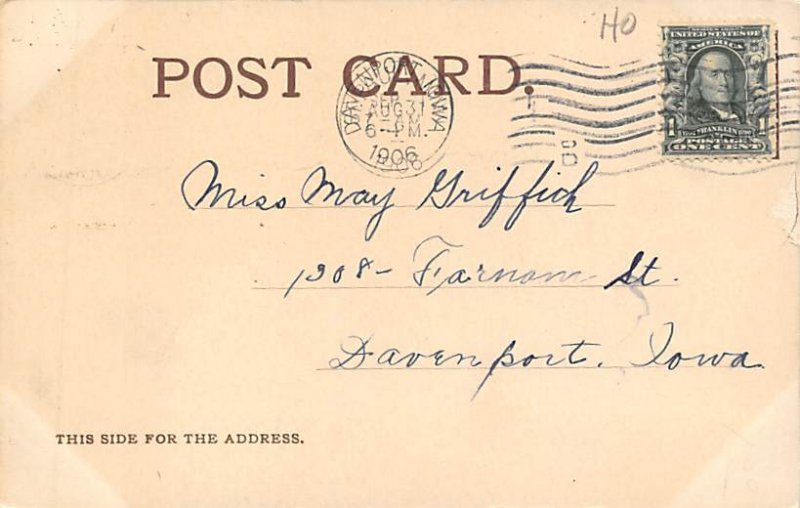 HO
POST CARD.
DAVENPORT IOWA
AUG 31
6-PM.
1906
UNITED STATES OF
AMERICA
1 FRANKLIN 1
POSTAGE
ONE CENT
Miss May Griffich
1308- Farnam St.
Davenport. Iowa
THIS SIDE FOR THE ADDRESS.